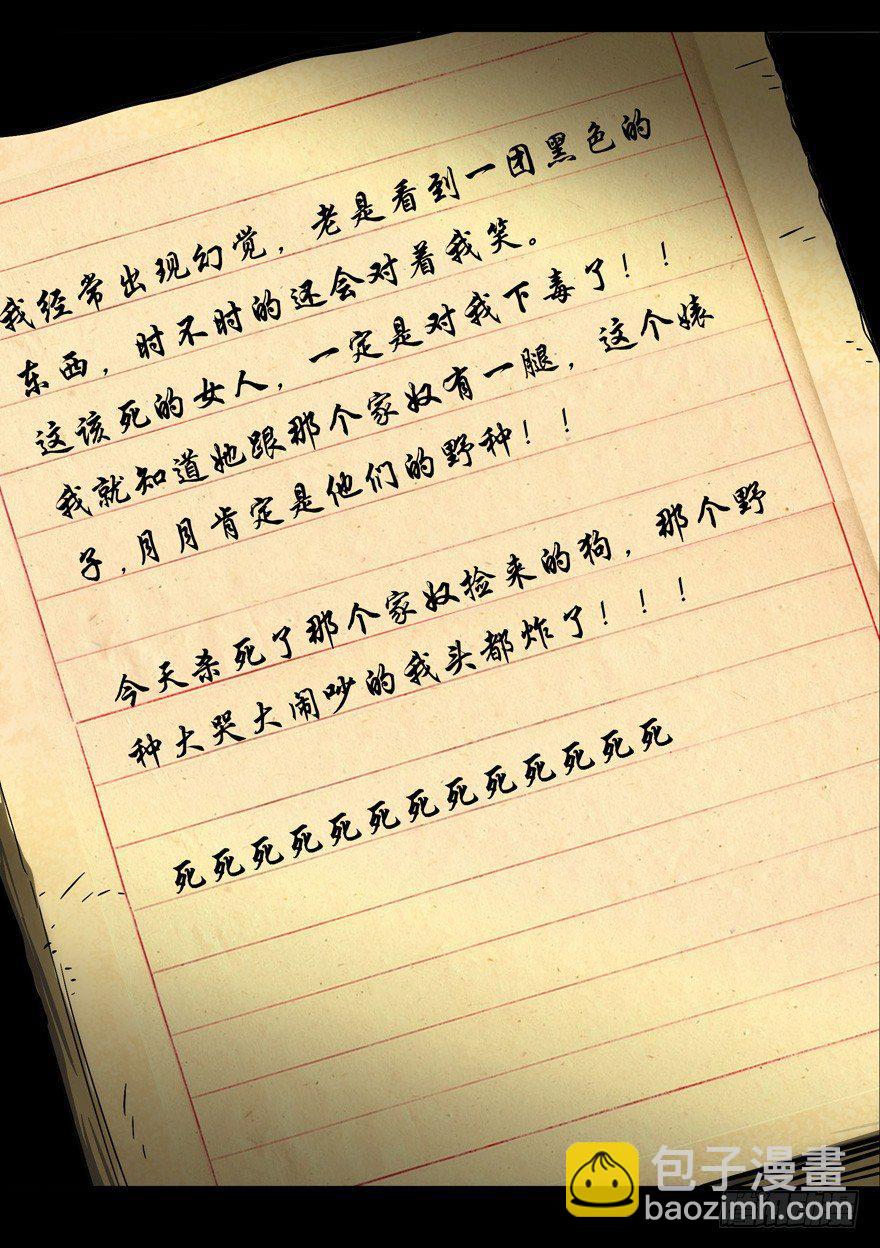 我经常出现幻觉，老是看到一团黑色的
东西，时不时的还会对着我笑。
这该死的女人，一定是对我下毒了！！
我就知道她跟那个家奴有一腿，这个婊
子，月月肯定是他们的野种！！
今天杀死了那个家奴捡来的狗，那个野
种大哭大闹吵的我头都炸了！！！
死死死死死死死死死死死死死
包子漫畫
baozimh.com